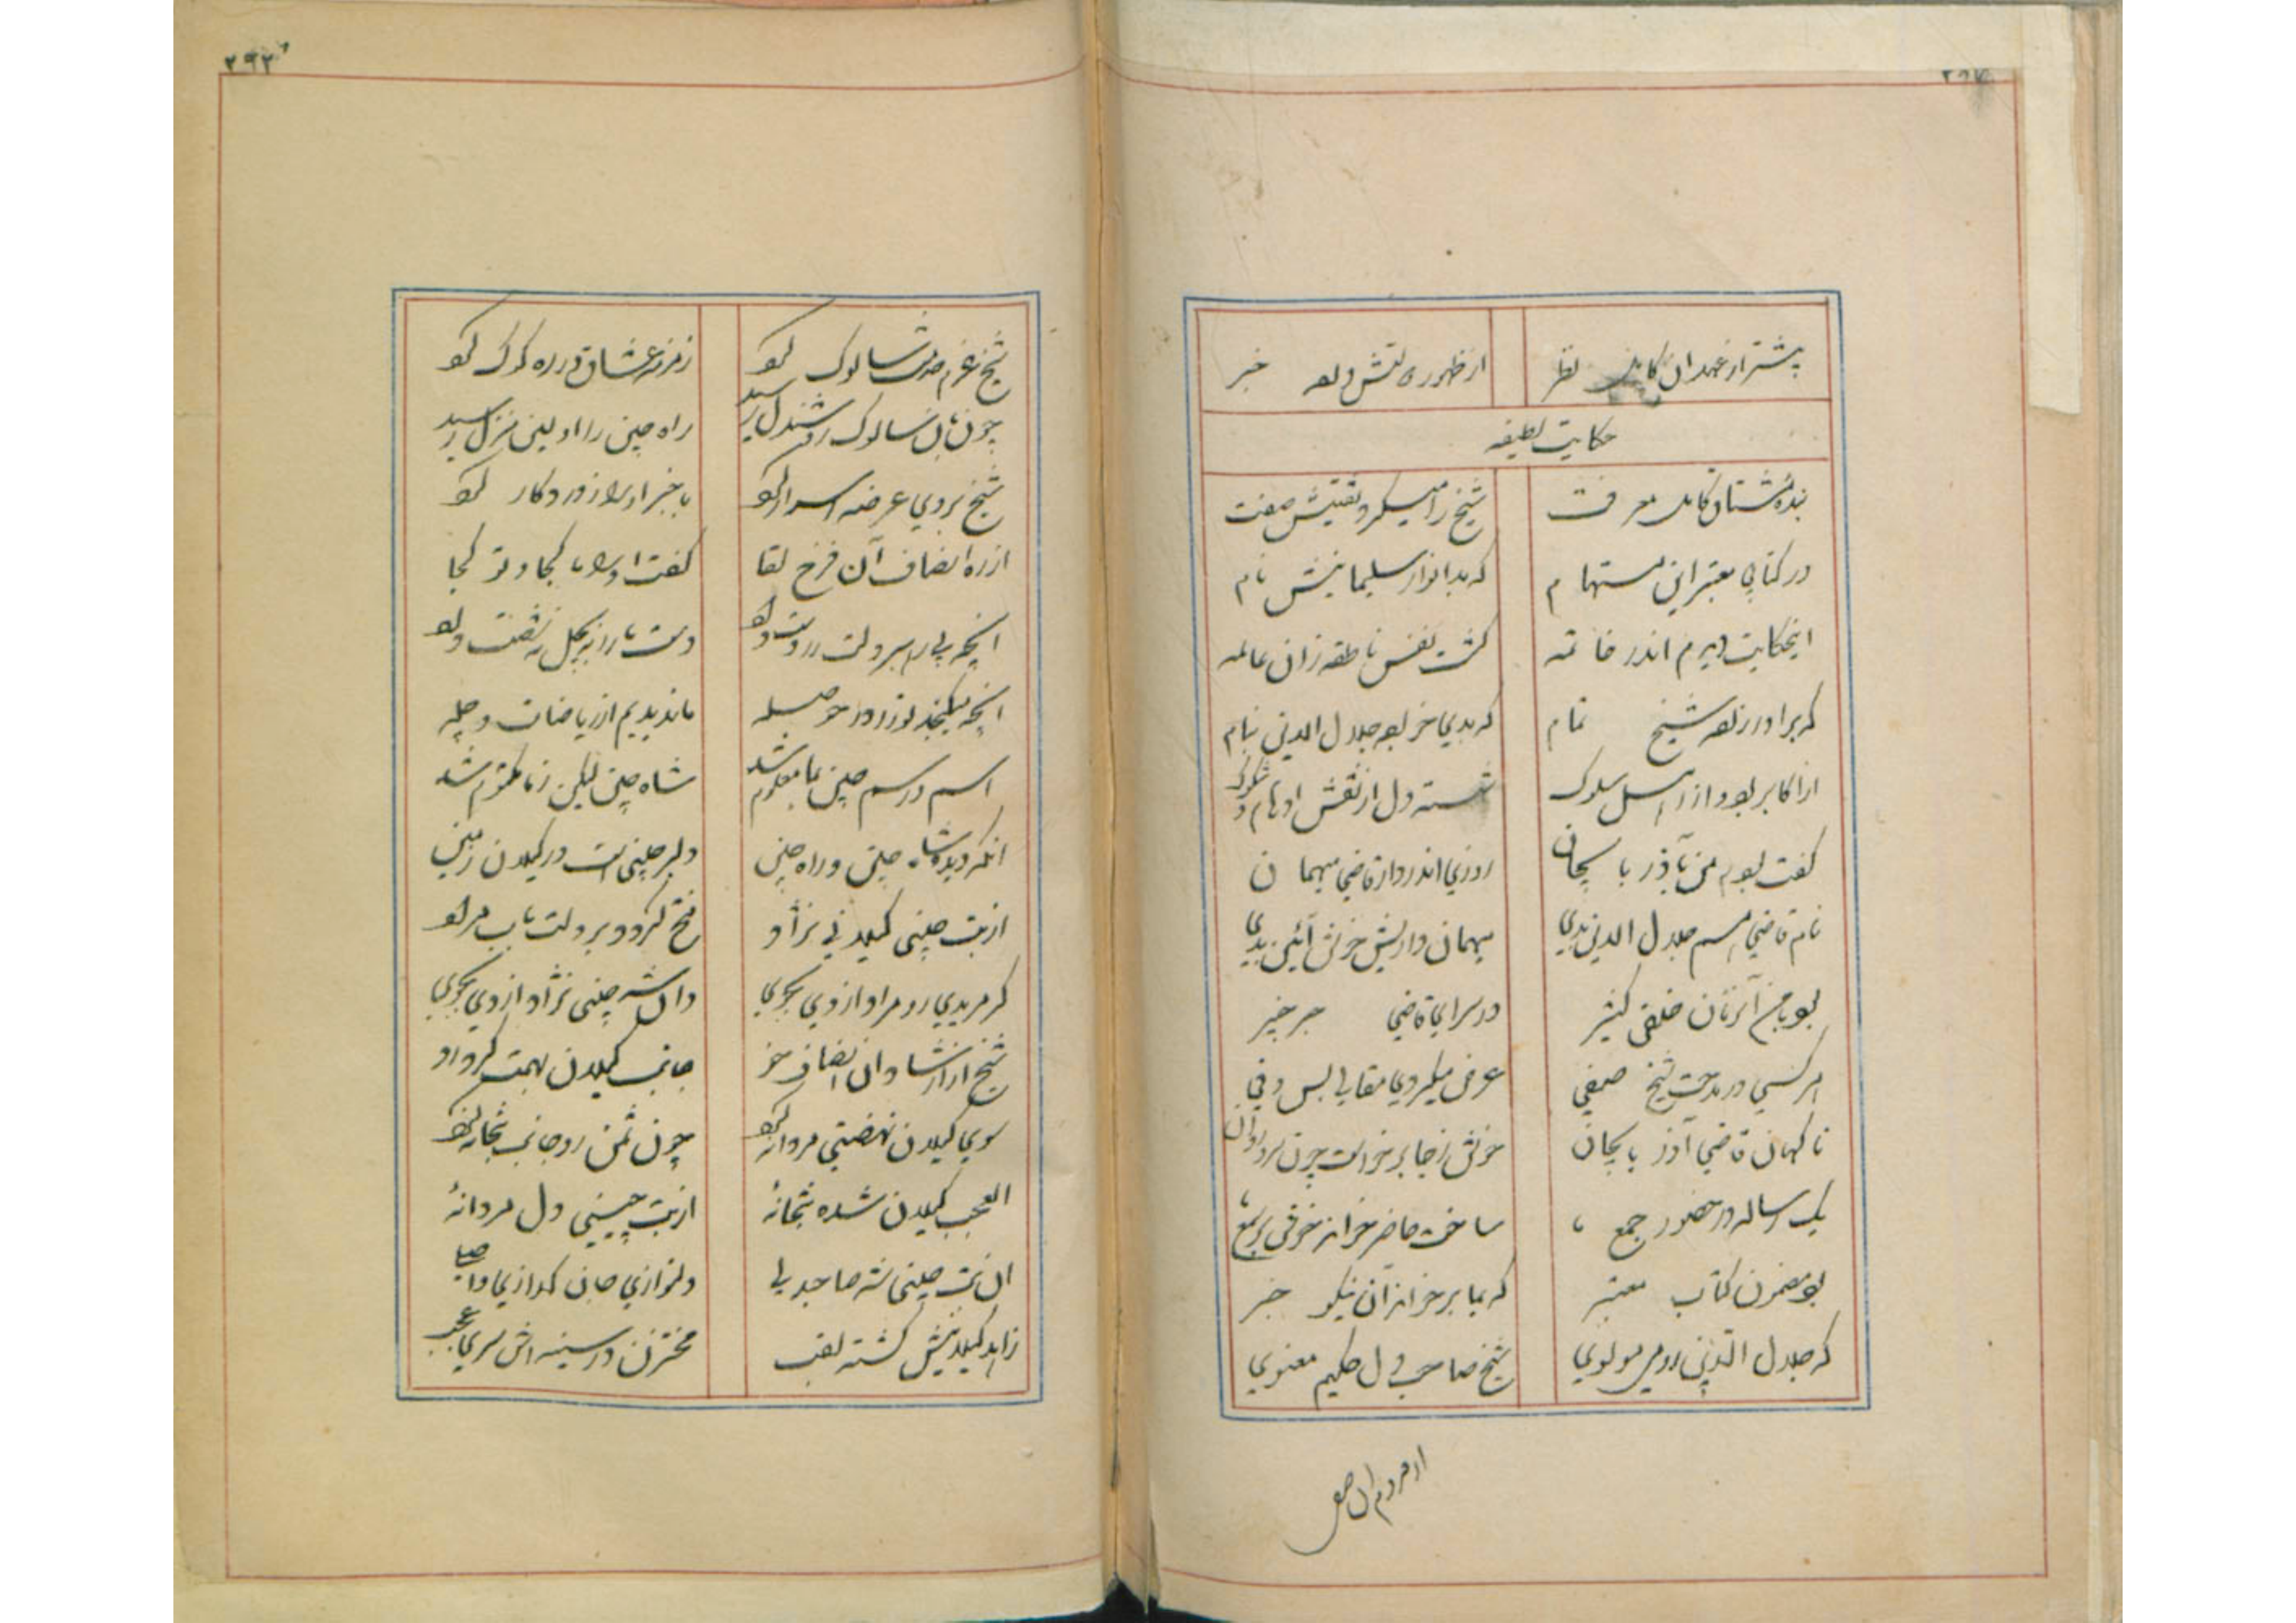 پیشتر از عهد ان کامل نظر از ظهور دلتش داد خبر
حکایت لطیفه
بنده مشتاق کامل معرفت شیخ را میکرد تفتیش صفت
در کتابی معتبر این مستهام که بد انوار سلیمانیش نام
اینحکایت دیدم اندر خاتمه گشت نفس ناطقه زان عالمه
که برادرزاده شیخ تمام که بدی خود جلال الدین بنام
از اکابر بود و از اهل سلوک شسته دل از نقش اوهام و شکوک
گفت بودم من بآذربایجان روزی اندر دار قاضی میهمان
نام قاضی هم جلال الدین بدی میهمان داریش خوش آئین بدی
بود با من آنزمان خلقی کثیر در سرای قاضی خبیر
هر کسی در مدحت شیخ صفی عرض میکردی مقالی بس وفی
ناگهان قاضی آذربایجان خوش زجا برخواست چون سرو روان
یک رساله در حضور جمع ما ساخت حاضر خواند خوش بر سمع ما
بود مضمون کتاب معتبر که بما برخواند آن نیکو خبر
که جلال الدین رومی مولوی شیخ صاحب دل حکیم معنوی
۲۹۳
شیخ عزم خدمت سالوک کرد زمزمه عشاق در ره کوک کرد
چون بآن سالوک روشندل رسید راه چین را اولین منزل رسید
شیخ بر وی عرضه اسرار کرد با خبر او را ز درد کار کرد
از ره انصاف آن فرخ لقا گفت او را ما کجا و تو کجا
انچه پی را سر دلت در دست داد دست ما را نه چهل نه شصت داد
انچه میگنجد تو را در حوصله ما ندیدیم از ریاضات و چله
اسم و رسم چین بما معلوم شد شاه چین لیکن ز ما مکتوم شد
انکه دیده شاه چین و راه چین دلبر چینی است در گیلان زمین
از بت چینی گیلانی نژاد فتح گردد بر دلت باب مراد
گر مریدی رو مراد از وی بجوی وان شه چینی نژاد از وی بجوی
شیخ از ارشاد وان انصاف مرد جانب گیلان بهمت کرد رو
سوی گیلان نهضتی مردانه کرد چون شمن رو جانب بتخانه کرد
العجب گیلان شده بتخانهٔ از بت چینی دل مردانهٔ
ان بت چینی شه صاحبدلی دلنوازی جان گدازی
زاهد گیلانیش گشته لقب مختزن در سینه اش سری عجب